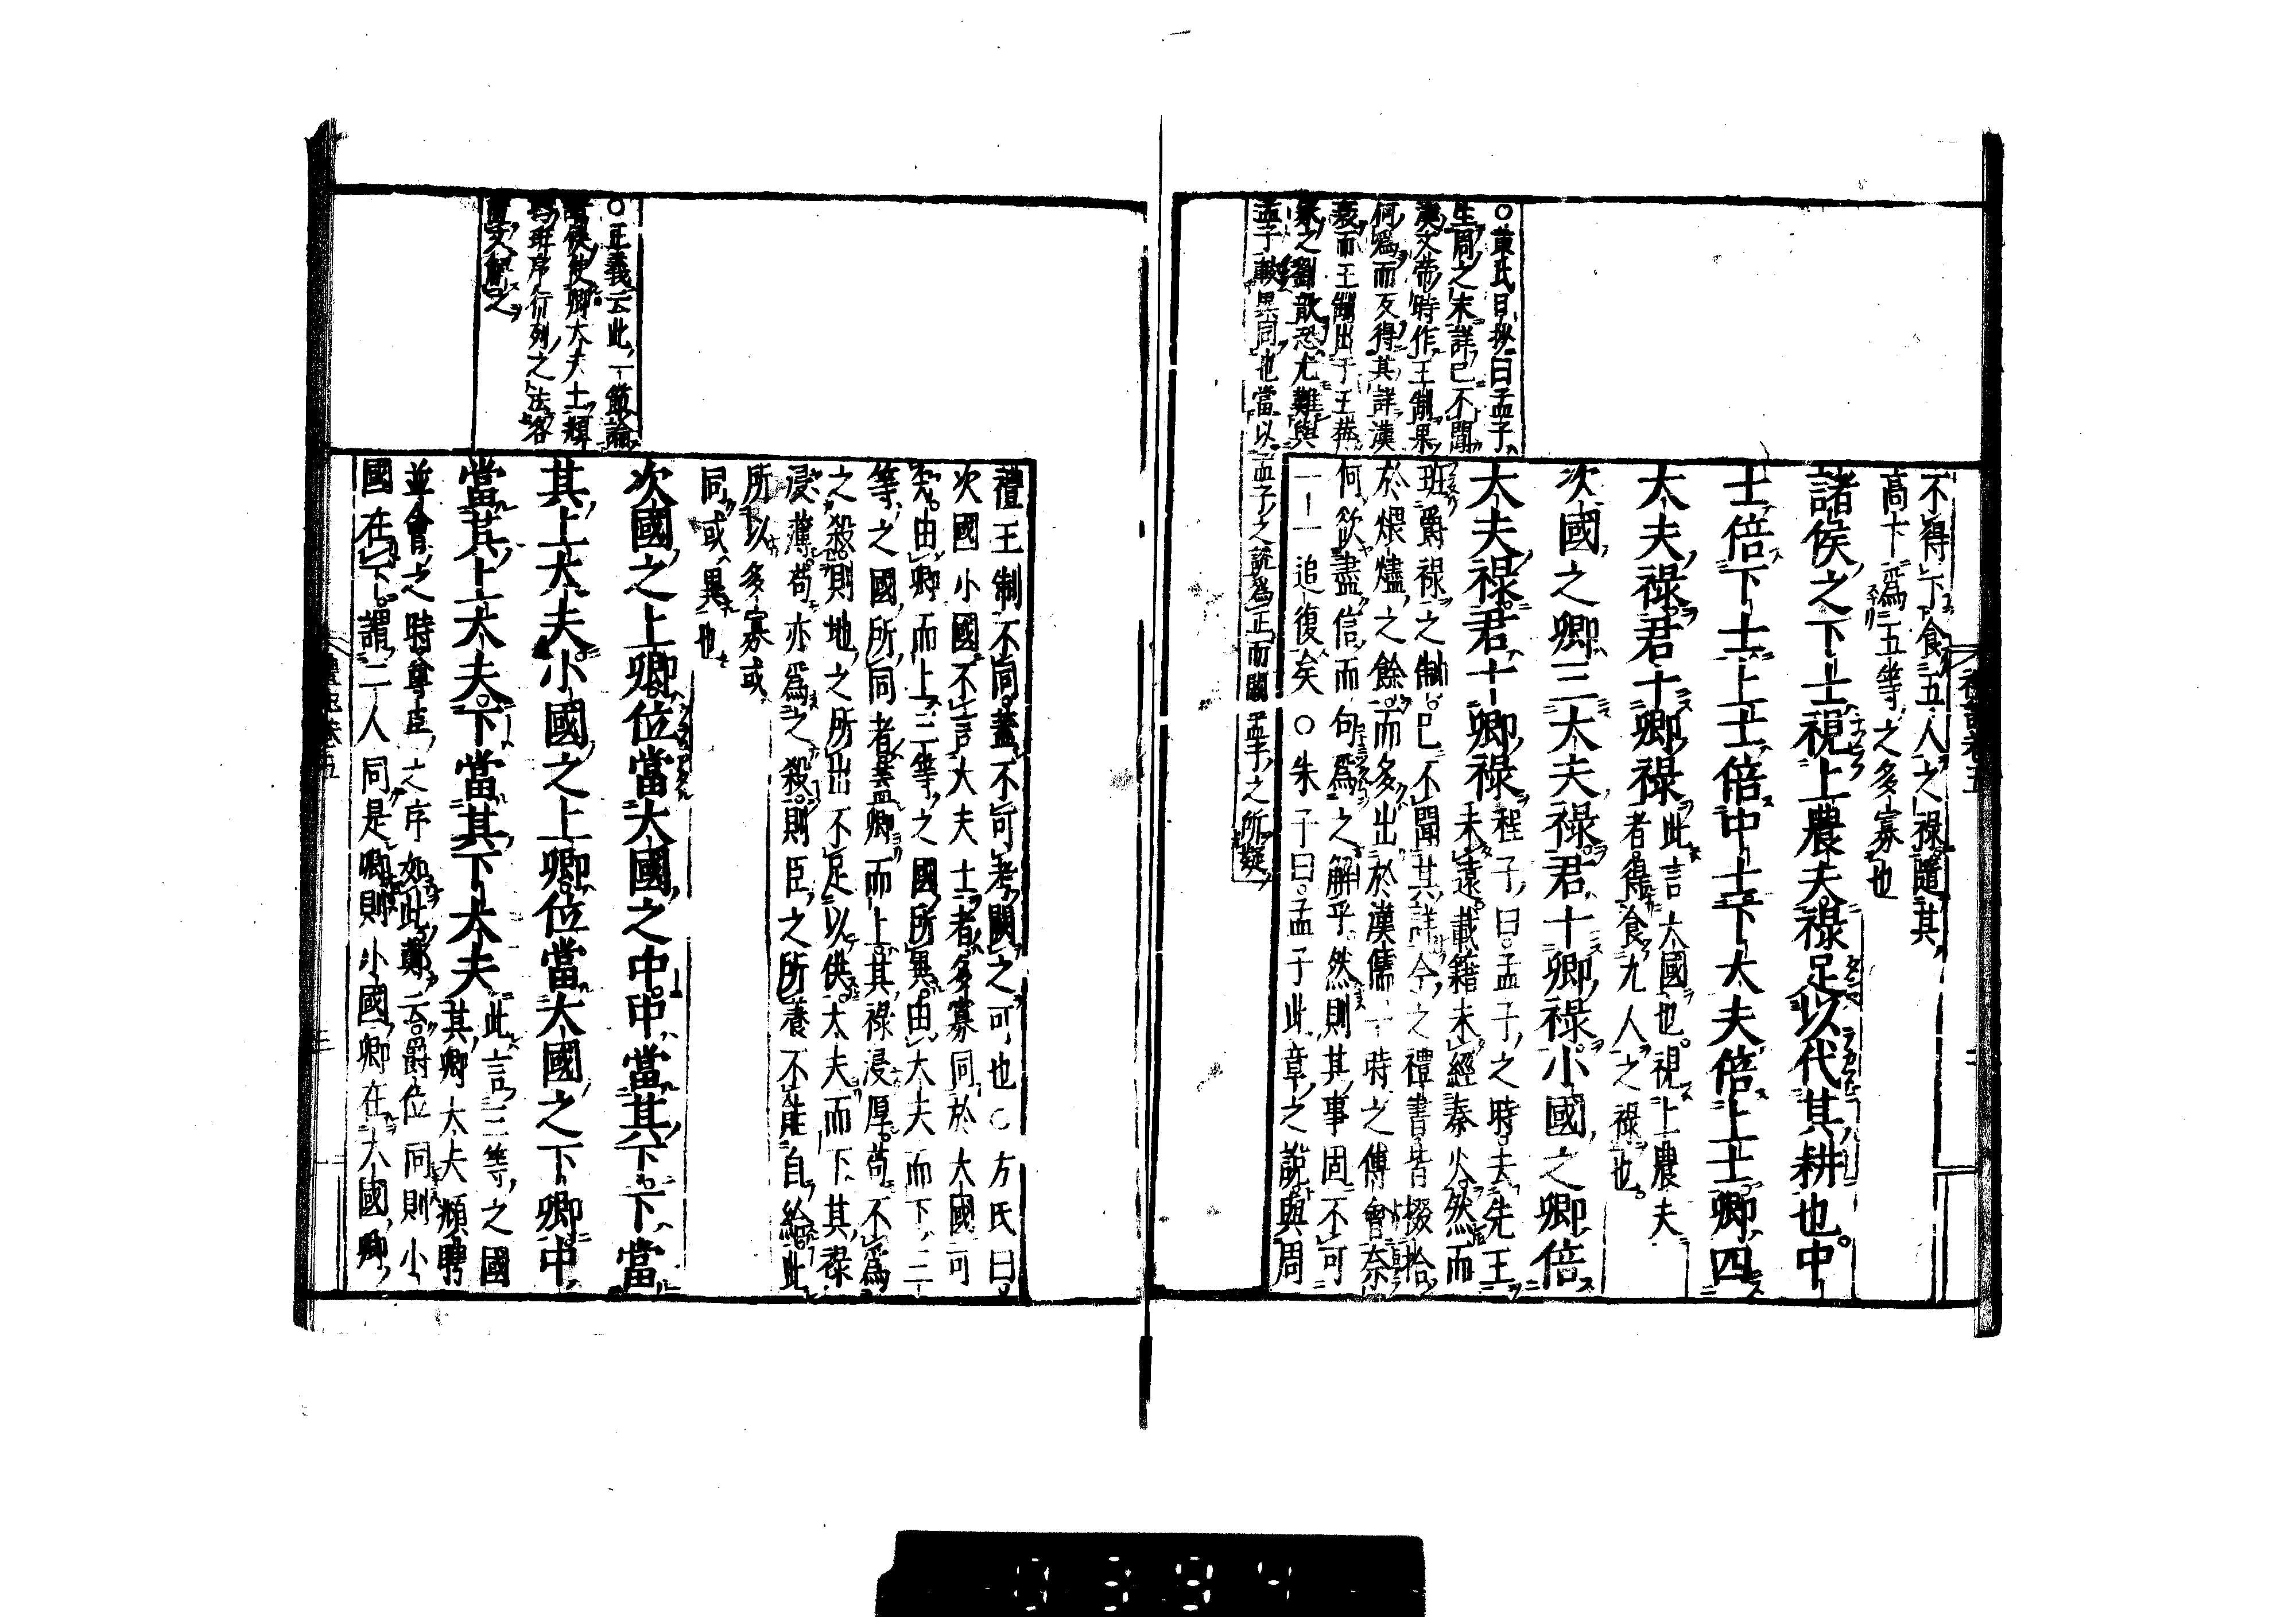 不得下食五人之祿隨其
高下爲五等之多寡也
諸侯之下士視上農夫祿足以代其耕也中
士倍下士上士倍中士下大夫倍上士卿四
大夫祿君十卿祿此言大國也視上農夫
者得食九人之祿也
次國之卿三大夫祿君十卿祿小國之卿倍
大夫祿君十卿祿程子曰孟子之時去先王
未遠載籍未經秦火然而
班爵祿之制已不聞其詳今之禮書皆掇拾
於煨燼之餘而多出於漢儒一時之傅會奈
何欲盡信而句爲之解乎然則其事固不可
一一追復矣○朱子曰孟子此章之說與周
○黄氏日抄曰孟子
生周之末詳已不聞
漢文帝時作王制果
何爲而反得其詳漢
衰而王制出于王莽
之劉歆恐尤難與
孟子較異同也當以孟子之說爲正而闕孟子之所疑
禮王制不同蓋不可考闕之可也○方氏曰
次國小國不言大夫士者多寡同於大國可
知由卿而上三等之國所異由大夫而下三
等之國所同者蓋卿而上其祿浸厚苟不爲
之殺則地之所出不足以供大夫而下其祿
浸薄苟亦爲之殺則臣之所養不能自給此
所以多寡或
同或異也
次國之上卿位當大國之中中當其下下當
其上大夫小國之上卿位當大國之下卿中
當其上大夫下當其下大夫此言三等之國
其卿大夫頫聘
並會之時尊臣之序如此鄭云爵位同則小
國在下謂二人同是卿則小國卿在大國卿
○正義云此一節論
諸侯使卿大夫士頫
班序行列之法各
文解之
禮記卷五